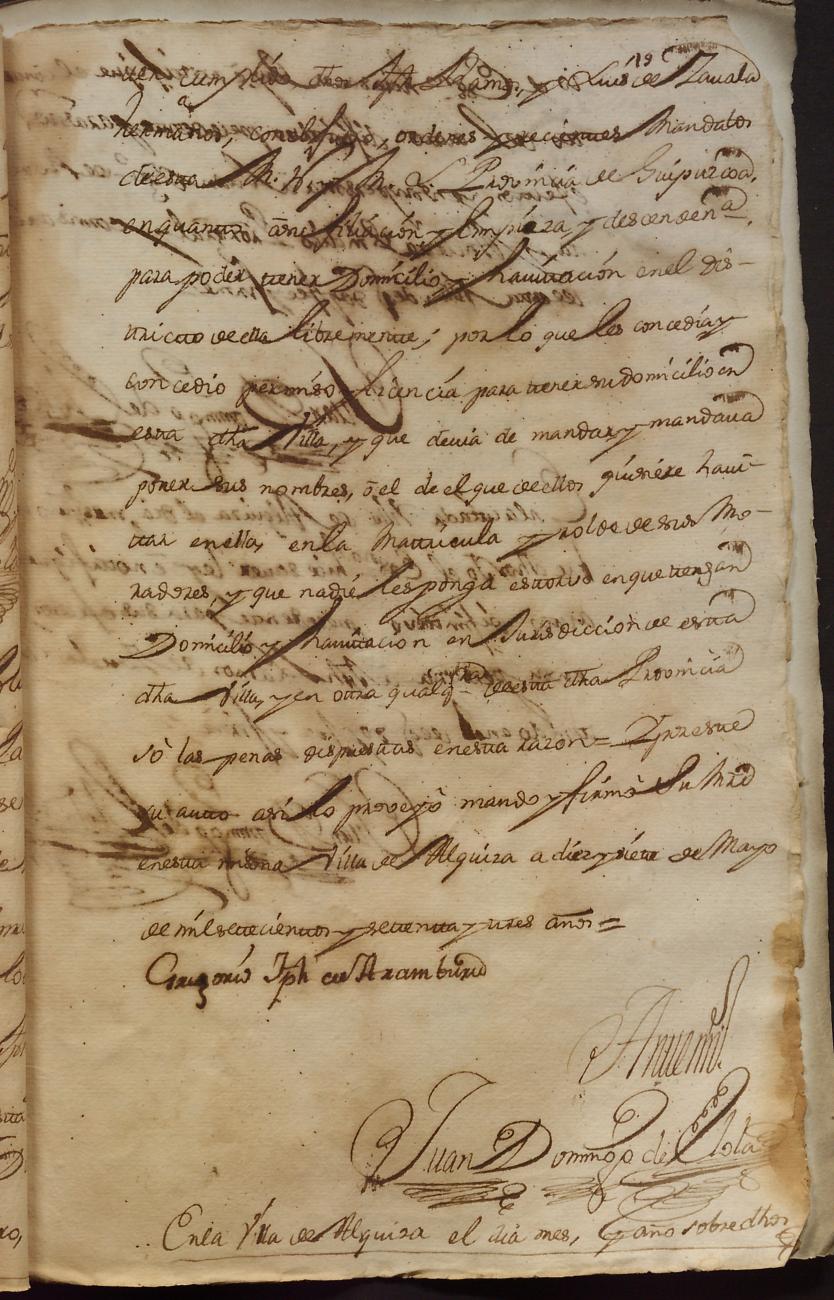 19
ver cumplido dhos Jph Ramos, y Luis de Zavala
hermanos, con las leyes, ordenes y recientes Mandatos
de esta M. N. y M. L. Provincia de Guipuzcoa,
en quanto a su filiación y limpieza y descendena,
para poder tener Domicilio y havitación en el dis-
tricto de ella libremente; por lo que les concedia y
concedio permiso y licencia para tener su domicilio en
esta dha Villa, y que devia de mandar y mandava
poner sus nombres, ô el de el que de ellos quisiére havi-
tar en ella, en la Matricula y rolde de sus Mo-
radores, y que nadie les ponga estorvo en que tengan
Domicilio y havitacion en Jurisdicción de esta
dha Villa, y en otra qualqra de esta dha Provincia
sò las penas dispuestas en esta razon = Y por este
su auto así lo proveyò mando y firmò Su Mrd
en esta misma Villa de Alquiza a diez y siete de Mayo
de mil setecientos y setenta y tres años =
Gregorio Jph de Aramburu
Antemi
Juan Domingo de
En la Villa de Alquiza el dia mes, y año sobredhos